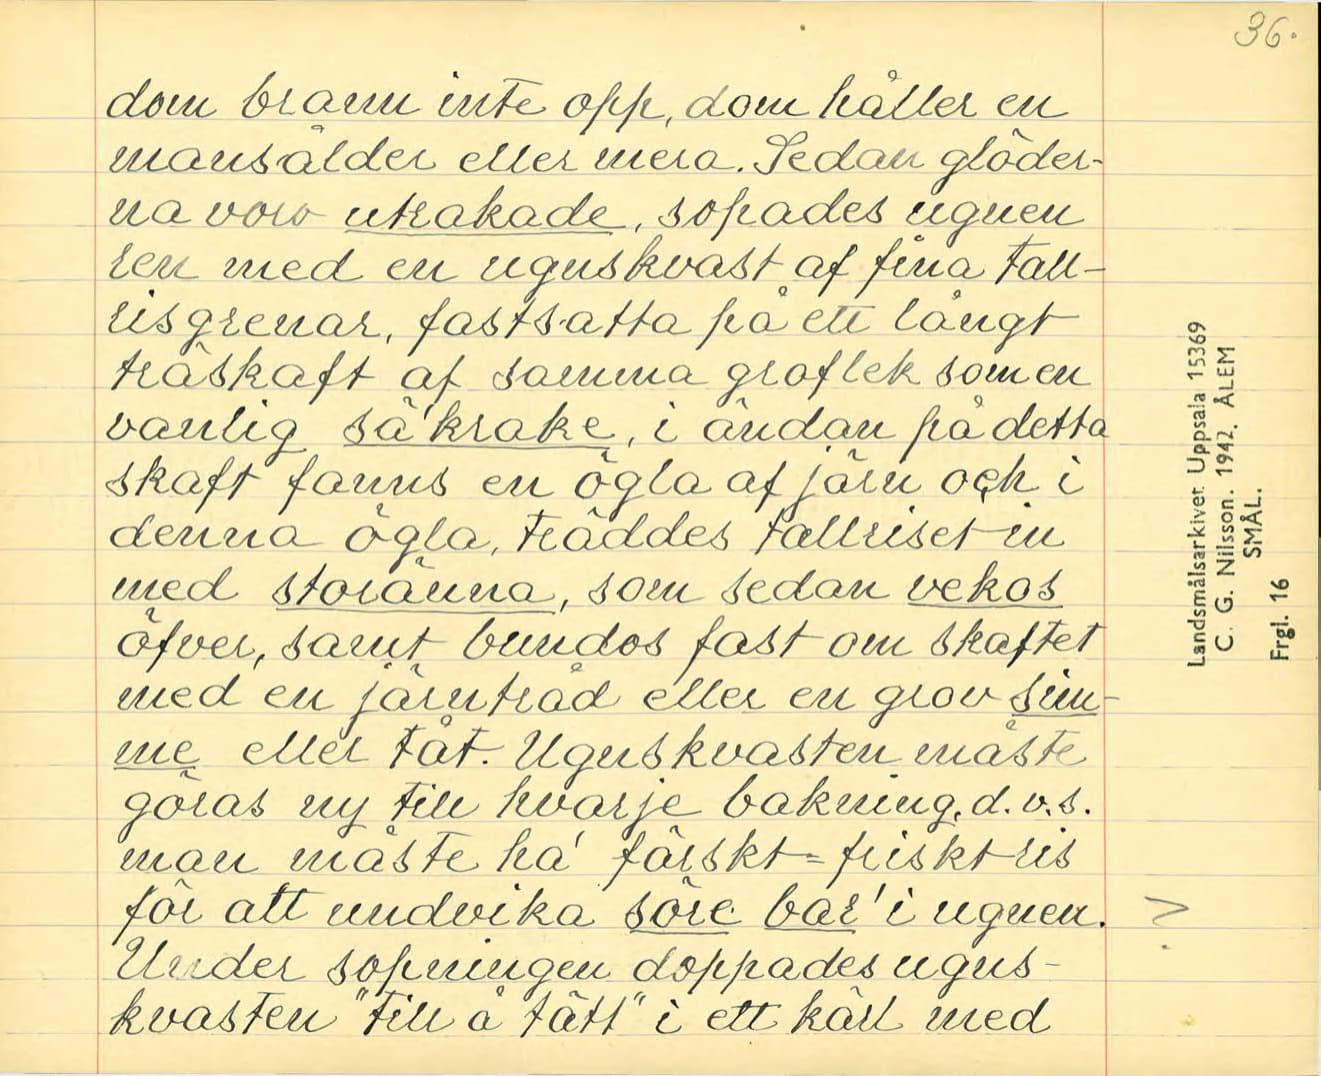 36.
dom brann inte opp, dom håller en
mansålder eller mera. Sedan glöder-
na voro utrakade, sopades ugnen
ren med en ugnskvast af fina tall-
risgrenar, fastsatta på ett långt
träskaft af samma groflek som en
vanlig så'krake, i ändan på detta
skaft fanns en ögla af järn och i
denna ögla, träddes tallriset in
med storänna, som sedan vekos
öfver, samt bundos fast om skaftet
med en järntråd eller en grov sim-
me eller tåt. Ugnskvasten måste
göras ny till hvarje bakning, d.v.s.
man måste ha' färskt = friskt ris
för att undvika söre bar' i ugnen.
Under sopningen doppades ugns-
kvasten "till å tätt" i ett kärl med
Landsmålsarkivet Uppsala 15369
C. G. Nilsson. 1942. ÅLEM
SMÅL.
Frgl. 16